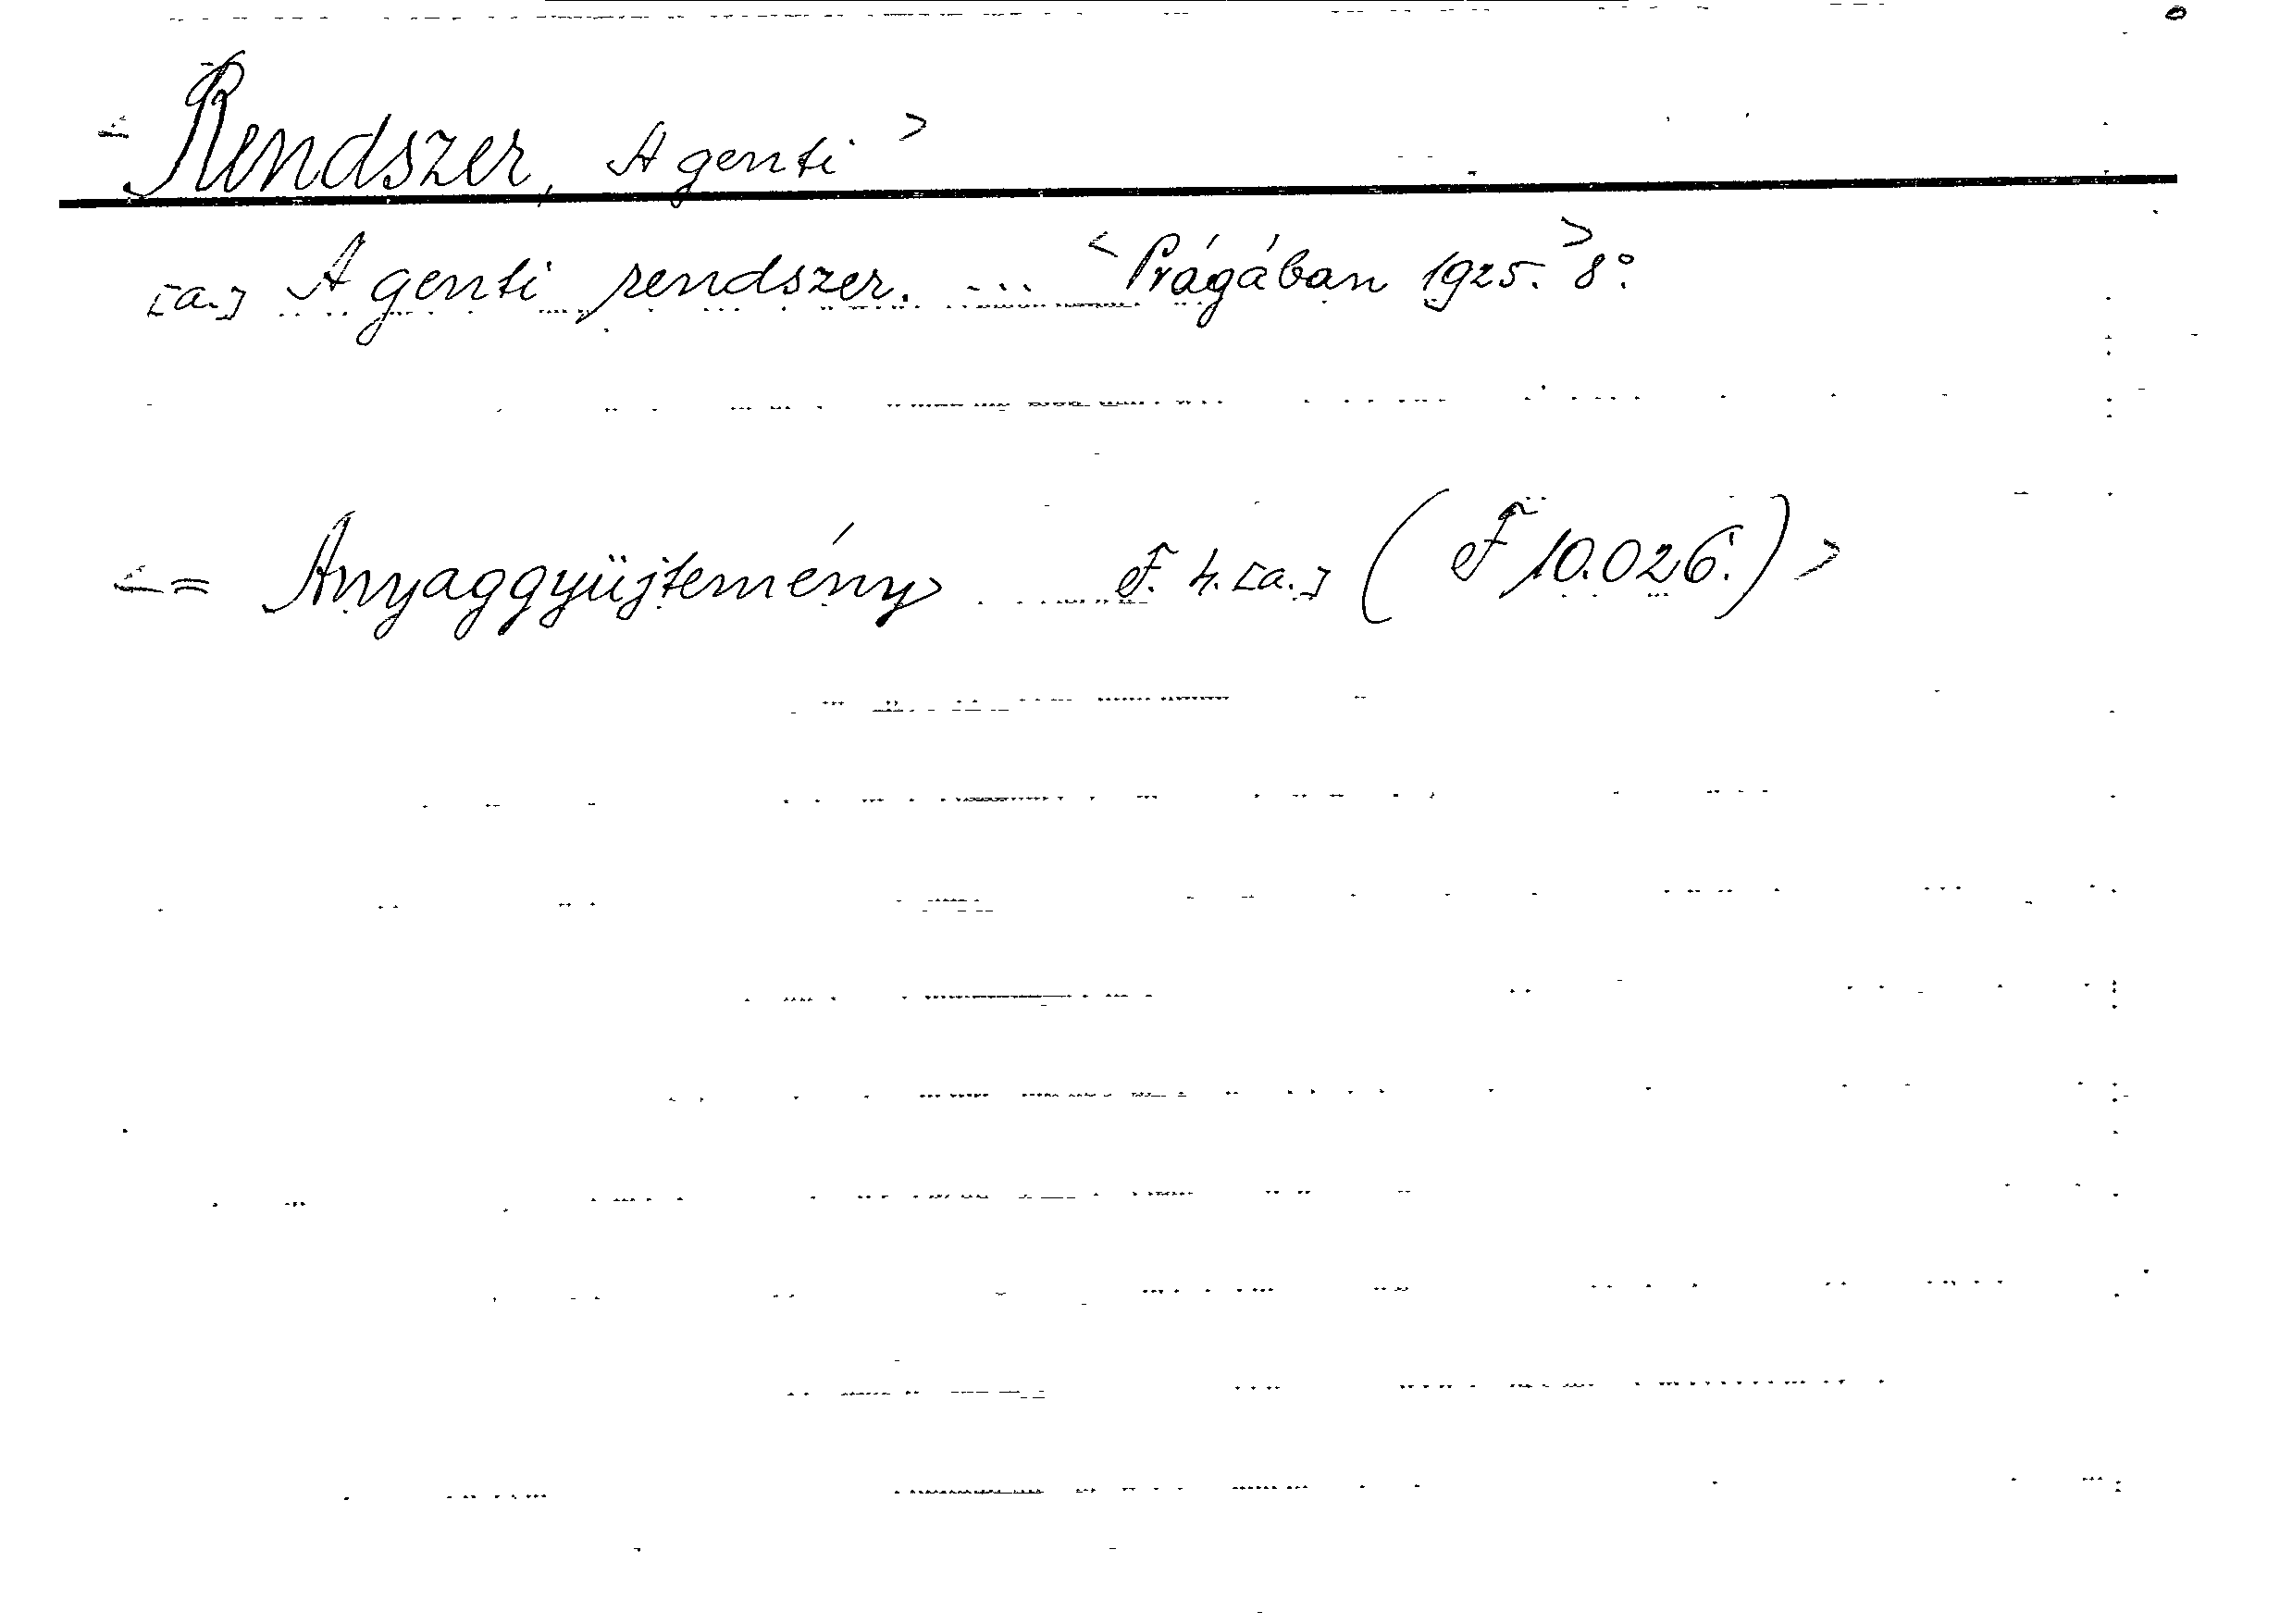 < Rendszer, A genti >
[a.] A genti rendszer. ... < Prágában 1925. > 8°
< = Anyaggyüjtemény F. h. [a.] ( F 10.026. ) >